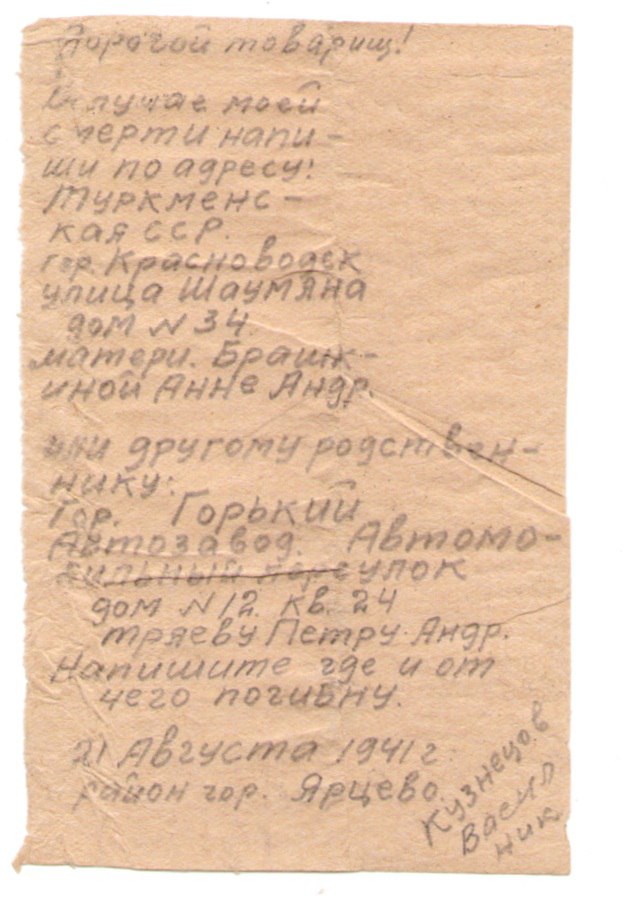 Дорогой товарищ!
Вслучае моей
смерти напи-
ши по адресу:
Туркменс-
кая ССР.
гор. Красноводск
улица Шаумяна
дом N 34.
матери. Брашк-
иной Анне Андр.
или другому родствен-
нику:
Гор. Горький
Автозавод. Автомо-
бильный переулок
дом N 12. кв. 24
тряеву Петру Андр.
Напишите где и от
чего погибну.
21 Августа 1941 г.
район гор. Ярцево
Кузнецов
Васил
ник